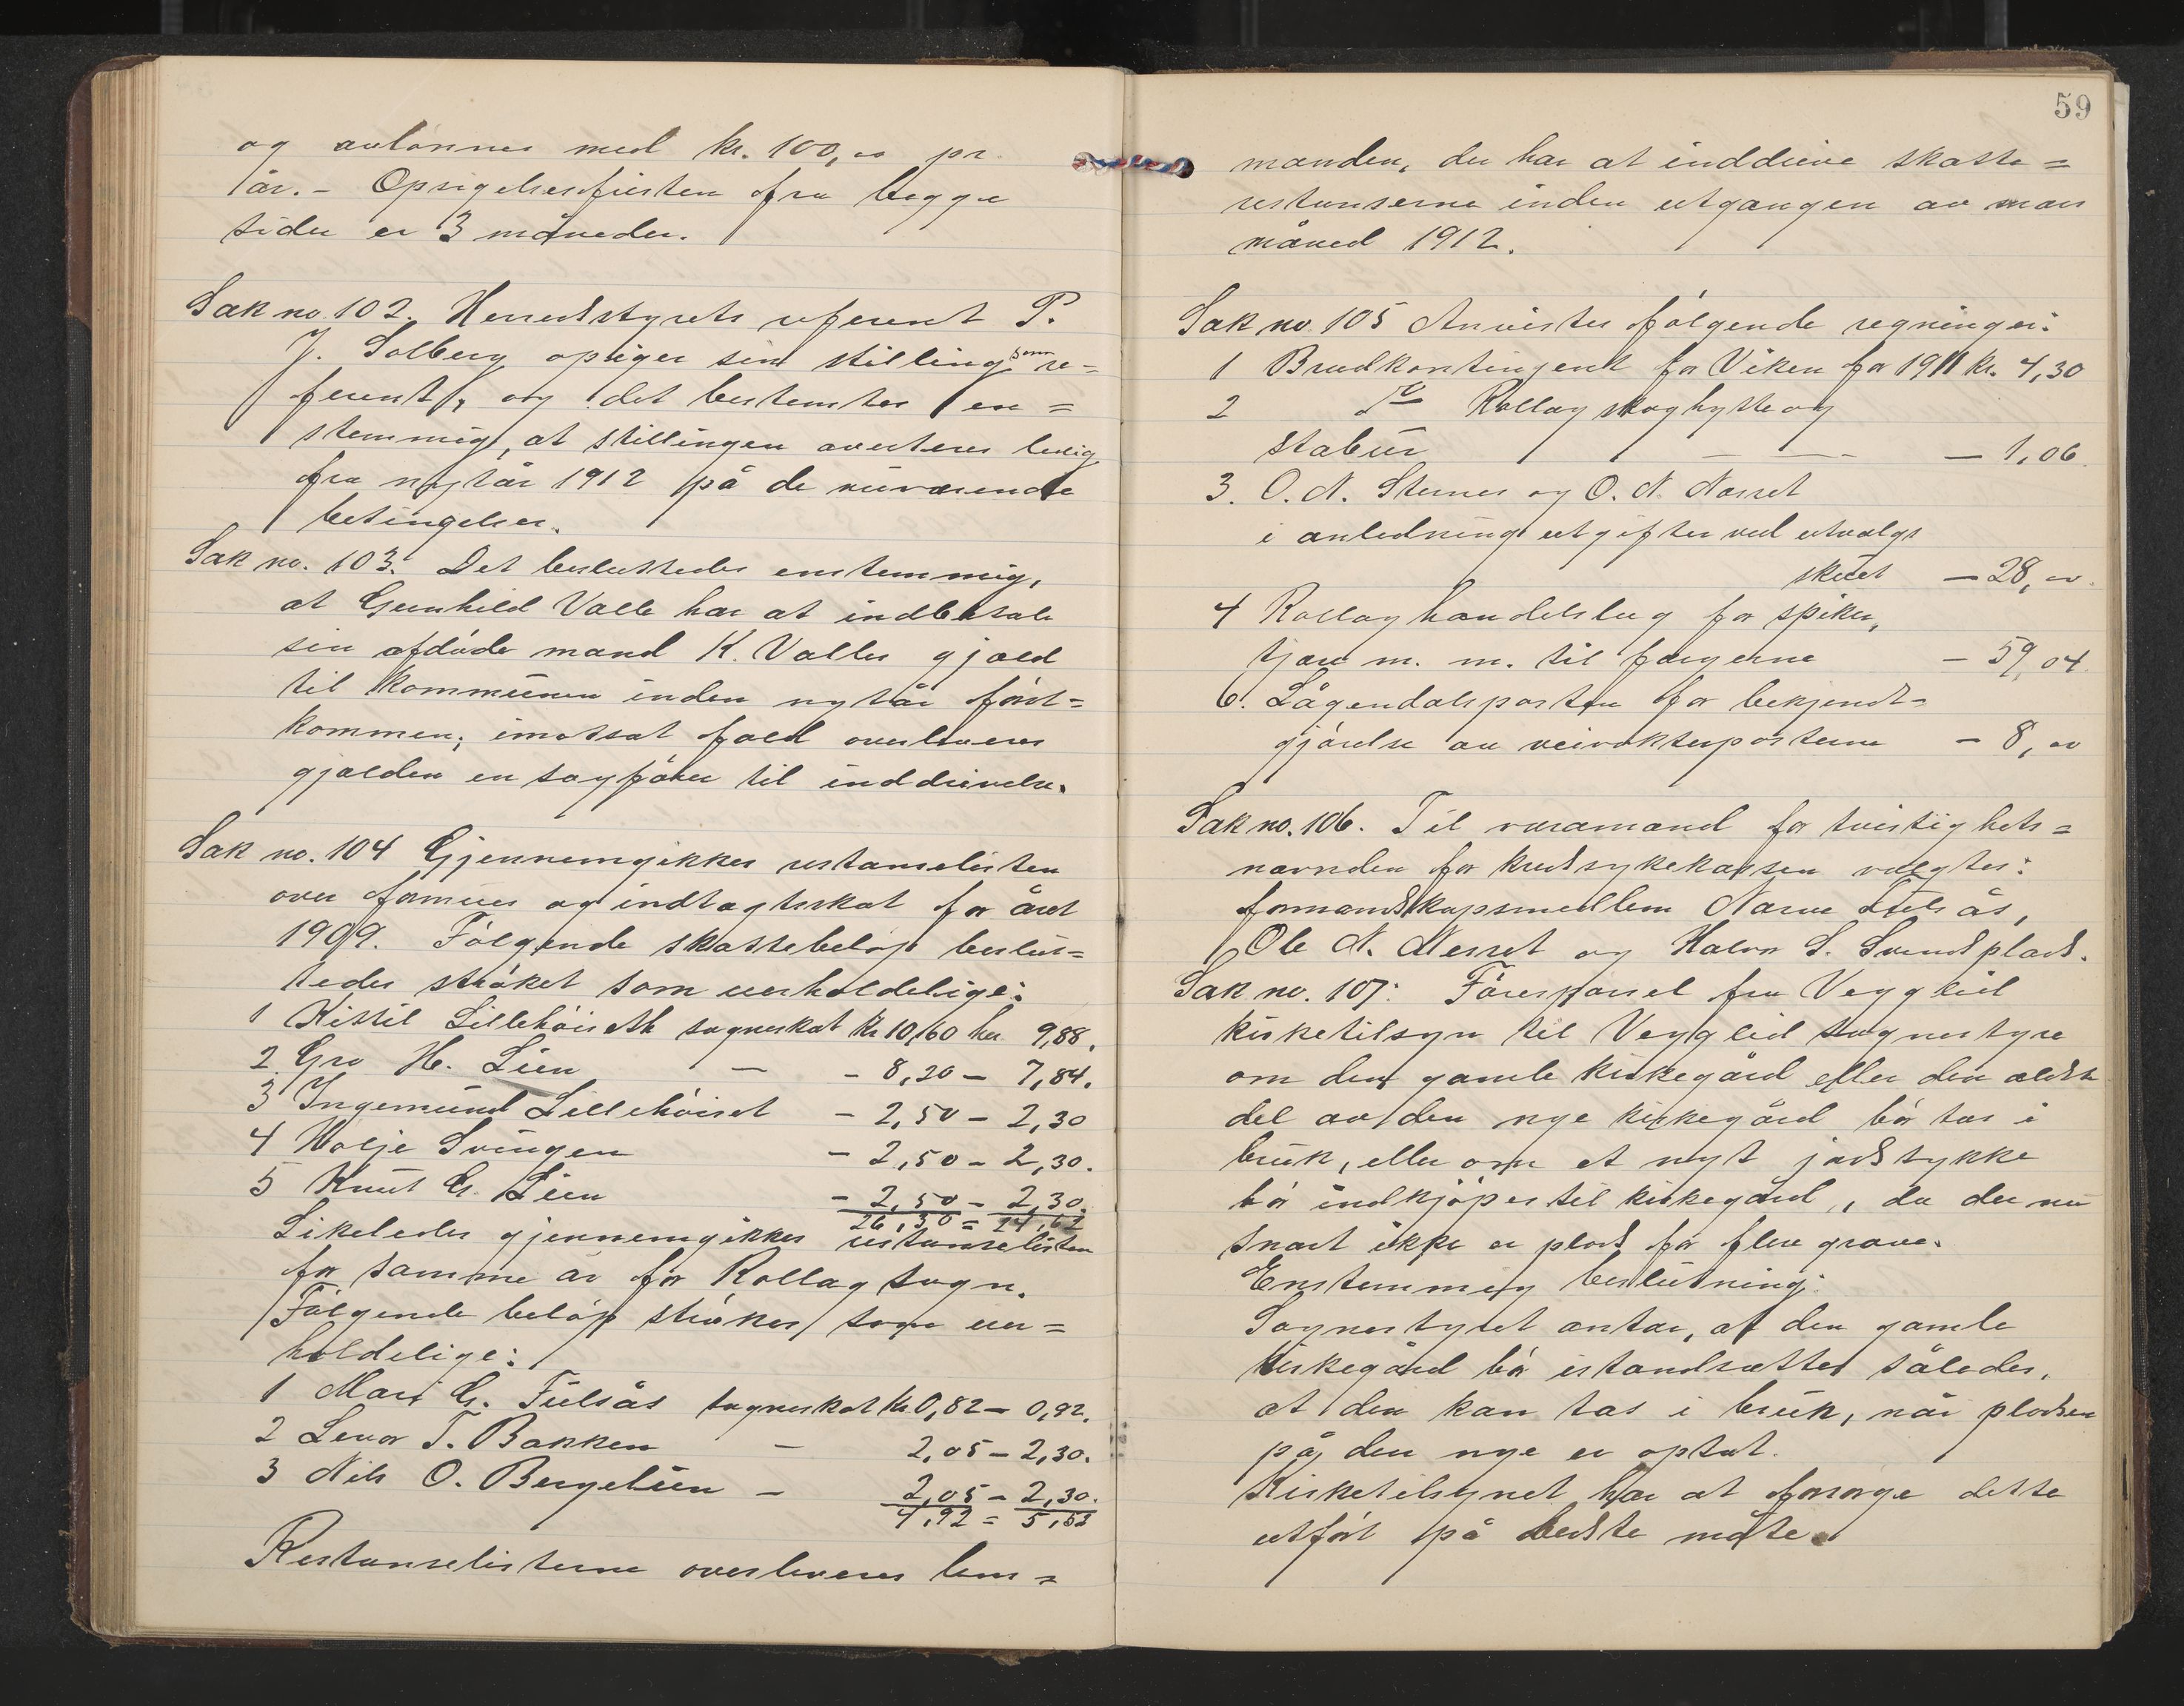 og avlönnes med kr. 100,00 pr.
år. - Opsigelsesfristen fra begge
sider er 3 måneder.
Sak no. 102. Herredstyrets referent P.
J. Solberg opsiger sin stilling som re=
ferent, og det bestemtes en=
stemmig, at stillingen averteres ledig
fra nytår 1912 på de nuværende
betingelser.
Sak no. 103. Det besluttedes enstemmig,
at Gunhild Valle har at indbetale
sin afdöde mand K. Valles gjæld
til kommunen inden nytår först=
kommen; imotsat fald overleveres
gjælden en sagförer til inddrivelse.
Sak no. 104 Gjennemgikkes restanselisten
over formues og indtægtsskat for året
1909. Fölgende skattebelöp beslut=
tedes ströket som uerholdelige:
1 Kittil Lillehöiseth sogneskat kr 10,60 her. 9,88.
2. Gro H. Lien — - 8,20 — 7,84.
3 Ingemund Lillehöiset - 2,50 — 2,30
4 Holje Svingen - 2,50 - 2,30.
5 Knut G. Lien - 2,50 — 2,30.
26,30 = 24,62
Likeledes gjennemgikkes restanselisten
for samme år for Rollag sogn.
Fölgende belöp strökes som uer=
holdelige:
1 Mari G. Fulsås sogneskat kr 0,82 — 0,92.
2 Levor T. Bakken — 2,05 — 2,30.
3 Nils O. Bergeliien — 2,05 — 2,30.
4,92 = 5,52
Restanselisterne overleveres lens=
59
manden, der har at inddrive skatte=
restanserne inden utgangen av mars
måned 1912.
Sak no. 105 Anvistes fölgende regninger:
1 Brudkontingent for Viken for 1911 kr. 4,30
2 Do Rollag skoghytte og
stabur — — — 1,06.
3. O. N. Sternes og O. N. Næsset
i anledning utgifter ved utvalgs
skuet — 28,00.
4 Rollag handelslag for spiker,
tjære m. m. til færgerne - 59,04.
6. Lågendalsposten for bekjendt=
gjörelse av veivokterposterne - 8,00
Sak no. 106. Til varamænd for tvistighets=
nævnden for kredssykekassen valgtes:
formandskapsmedlem Narve Fulsås,
Ole N. Nesset og Halvor S. Svendsplads.
Sak no. 107: Förespörsel fra Vegglid
kirketilsyn til Vegglid sognestyre
om den gamle kirkegård eller den ældste
del av den nye kirkegård bör tas i
bruk, eller om et nyt jordstykke
bör indkjöpes til kirkegård, da der nu
snart ikke er plads for flere grave.
Enstemmig beslutning:
Sognestyret antar, at den gamle
kirkegård bör istandsættes således,
at den kan tas i bruk, når pladsen
på den nye er optat.
Kirketilsynet har at forsorge dette
utfört på bedste måte.